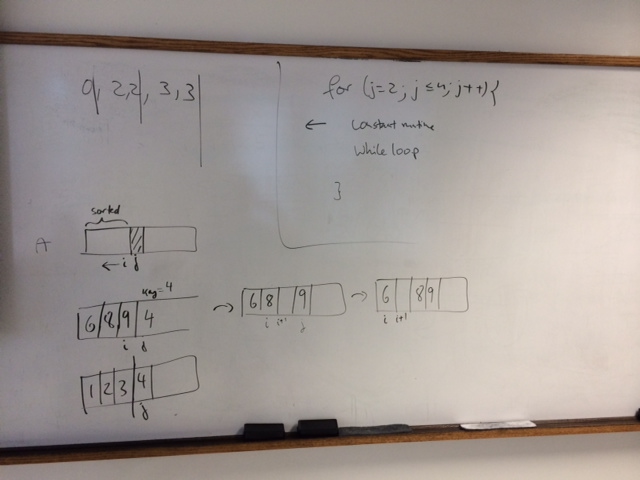 0, 2,2, 3,3
for (j=2; j ≤ n; j++) {
← constant runtime
while loop
}
sorted
A
← i j
key=4
6 8 9 4
i j
→ 6 8 9
i i+1 j
→ 6 8 9
i i+1
1 2 3 4
j